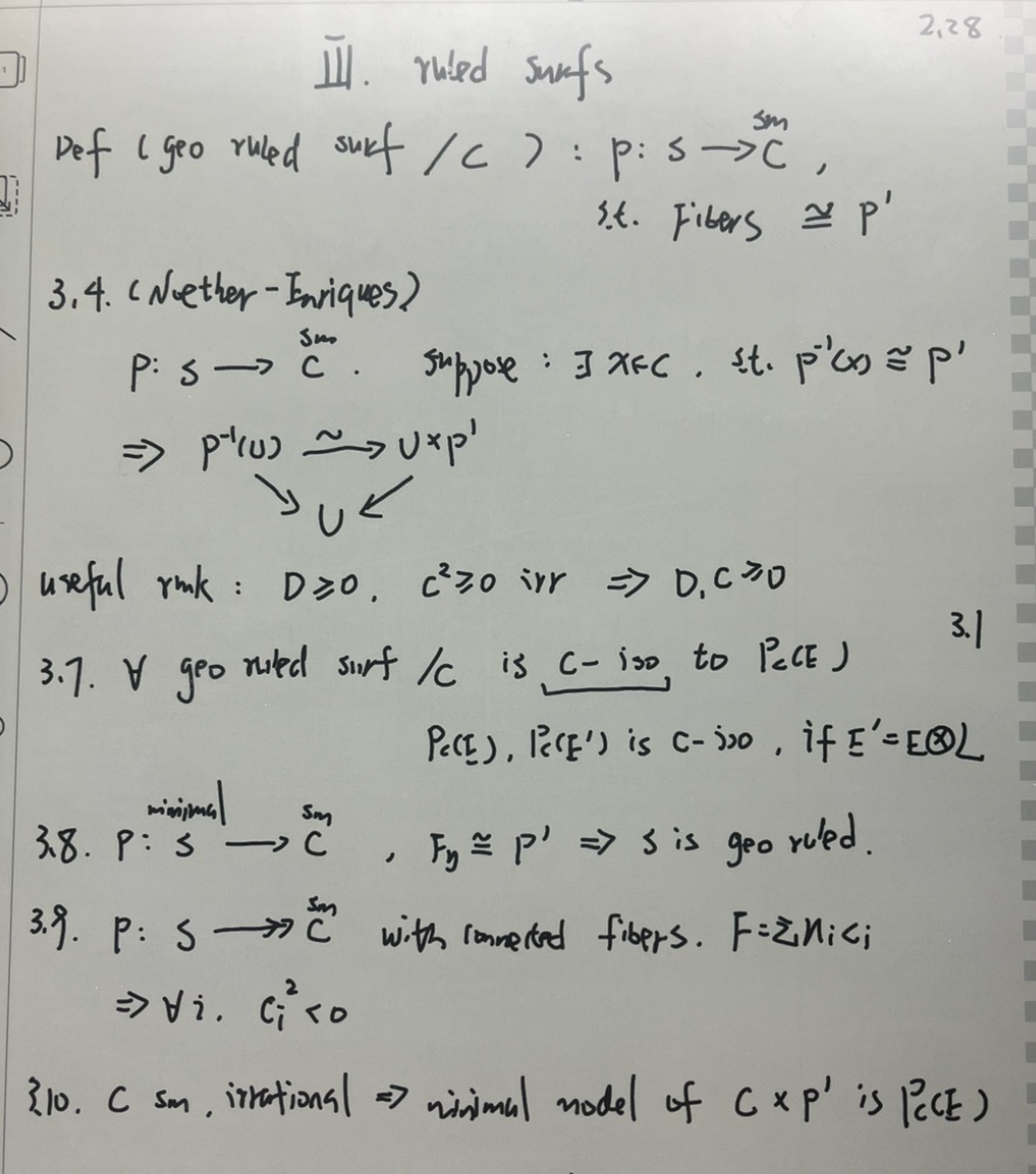 2.28
III. ruled surfs
Def (geo ruled surf /C) : p: S → C^{sm},
s.t. Fibers ≅ P¹
3.4. (Noether-Enriques)
p: S → C^{sm}. suppose : ∃ x∈C. s.t. p⁻¹(x) ≅ P¹
⇒ p⁻¹(U) ⥲ U×P¹
↘ U ↙
useful rmk : D≥0. C²≥0 irr ⇒ D.C≥0
3.1
3.7. ∀ geo ruled surf /C is C-iso to P_C(E)
P_C(E), P_C(E') is C-iso, if E'=E⊗L
3.8. p: S^{minimal} → C^{sm}, F_y ≅ P¹ ⇒ S is geo ruled.
3.9. p: S ↠ C^{sm} with connected fibers. F=Σn_iC_i
⇒ ∀i. C_i² < 0
3.10. C sm, irrational ⇒ minimal model of C×P¹ is P_C(E)